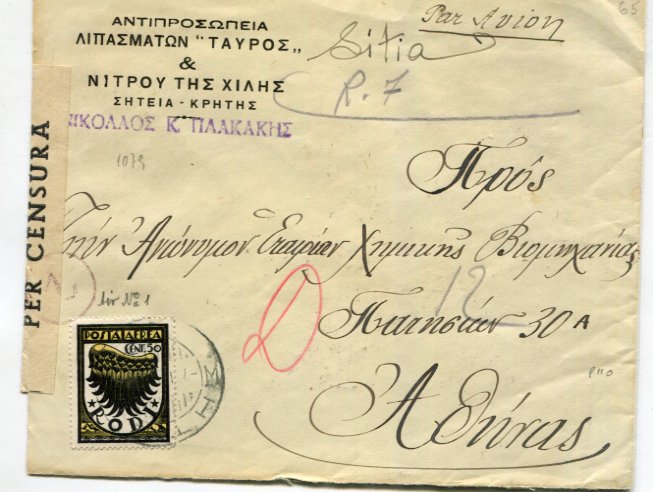 ΑΝΤΙΠΡΟΣΩΠΕΙΑ
ΛΙΠΑΣΜΑΤΩΝ "ΤΑΥΡΟΣ„
&
ΝΙΤΡΟΥ ΤΗΣ ΧΙΛΗΣ
ΣΗΤΕΙΑ - ΚΡΗΤΗΣ
ΝΙΚΟΛΑΟΣ Κ. ΠΛΑΚΑΚΗΣ
Par Avion
65
Sitia
R. 7
1079
Πρός
Τὴν Ἀνώνυμον Εταιρίαν Χημικῆς Βιομηχανίας
12
Πατησίων 30 Α
Ἀθήνας
P110
PER CENSURA
Air No 1
POSTA AEREA
CENT. 50
RODI